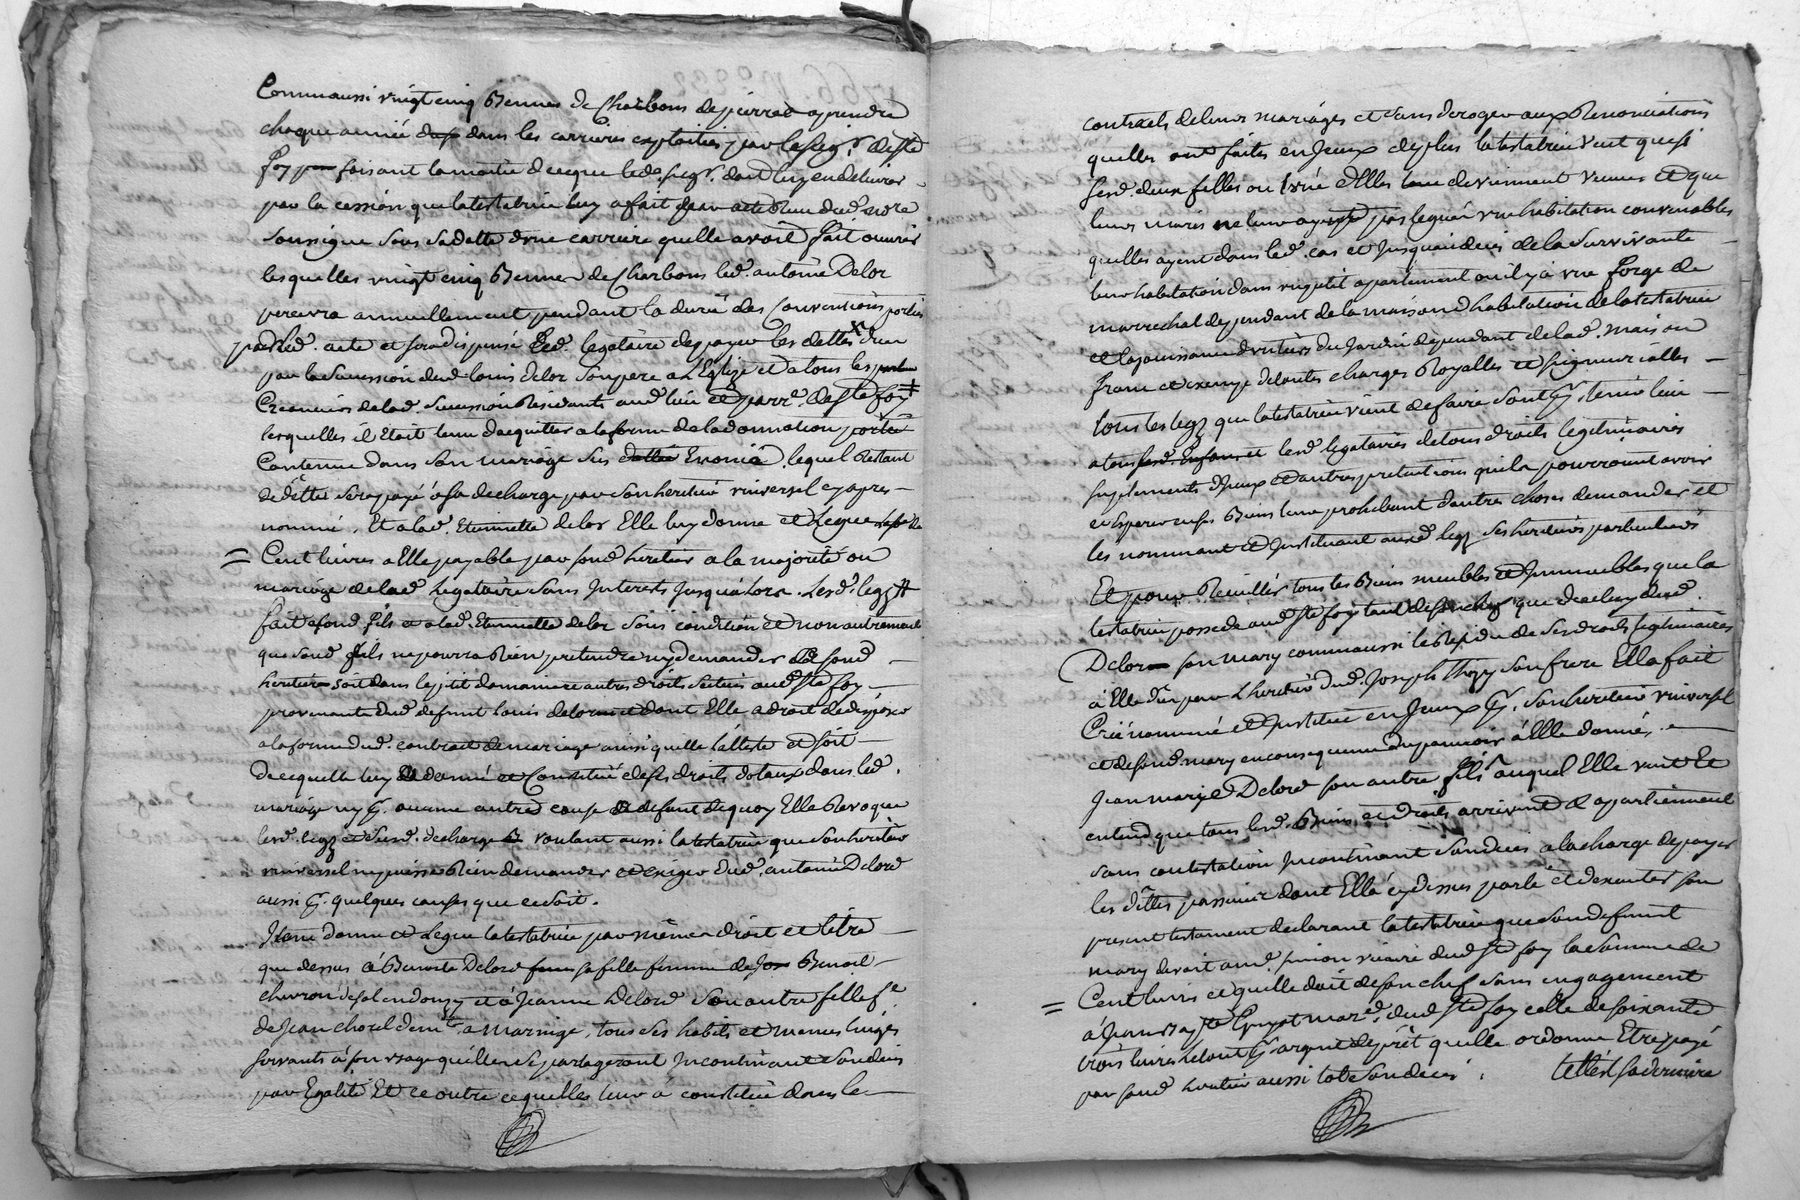 Comm aussi vingt cinq Bennes de Charbons de pierre a prendre
chaque année dans les carrieres exploitées par le seigr. de Ste
foy faisant la moitié de ce que led. seigr. doit luy en delivrer
par la cession que la testatrice luy a fait par acte Reçu dud. no.re
soussigné sous sa datte d'une carriere quelle avoit fait ouvrir
lesquelles vingt cinq Bennes de Charbons led. antoine Delor
percevra annuellement pendant la durée des Conventions portées
par led. acte et sera dispensé led. legataire de payer les dettes dues
par la Succession dud. louis delor son pere a L'Eglize et a tous les
Creanciers de lad. Succession Residants aud. lieu et parr.e de Ste foy
lesquelles il Etoit tenu d'acquitter a la forme de la donnation portée
Contenue dans son mariage sus Enoncé, lequel Restant
de dettes sera payé a sa decharge par son heritier universel cy apres
nommé. Et a lad. Etiennette delor Elle luy donne et Legue
Cent livres a Elle payable par sond. heritier a la majorité ou
mariage de lad. Legataire sans Interets Jusqu'a lors. Lesd. legz
fait a sond. fils et a lad. Etiennette delor sous condition et non autrement
que sond. fils ne pourra Rien pretendre ny demander a sond.
heritier soit dans le petit domaine et autres droits scitués aud. Ste foy
provenants dud. defunt louis delor et dont Elle a droit de disposer
a la forme dud. contract de mariage ainsi quelle l'atteste et soit
de ce quelle luy a donné et Constitué de ses droits dotaux dans led.
mariage ny pr. aucune autre cause a defaut de quoy Elle Revoque
lesd. legz et susd. decharge voulant aussi la testatrice que son heritier
universel ne puisse Rien demander et exiger dud. antoine Delord
aussi pr. quelques causes que ce soit.
Item donne et Legue la testatrice par mêmes droit et titre
que dessus a Benoite Delord sa fille femme de Benoit
chevron de et a Jeanne Delord son autre fille f.e
de Jean choul dem.t a Mornige, tous ses habits et menus linges
servants a son usage quelles se partageront Incontinant son deces
par Egalité Et ce outre ce quelles leur a constitué dans les
contracts de leurs mariages et sans deroger aux Renonciations
quelles ont faites en Iceux de plus la testatrice veut que si
sesd. deux filles ou l'une d'Elles deviennent veuves et que
leurs maris ne leur ayent pas legué une habitation convenable
quelles ayent dans led. cas et Jusqu'au deces de la survivante
leur habitation dans un petit apartement ou il y a une forge de
marrechal dependant de la maison d'habitation de la testatrice
et la jouissance d'un tiers du Jardin dependant de lad. maison
franc et exempt de toutes charges Royalles et seigneurialles
tous les legz que la testatrice vient de faire sont pr. tenir lieu
a tous sesd. Enfans et lesd. legataires de tous droits legitimaires
suplements d'Iceux et d'autres pretentions quils pourroient avoir
et esperer en ses Biens leur prohibant d'autres choses demander et
les nommant et Instituant auxd. legz ses heritiers particuliers
Et pour Recuillir tous les Biens meubles et Immeubles que la
testatrice possede aud. Ste foy tant de son chef que de celuy dud.
Delor son mary comm aussi le Residu de ses droits legitimaires
a Elle dus par L'heritier dud. Joseph Thizy son frere Elle a fait
Créé nommé et Institué en Iceux pr. son heritier universel
et de sond. mary en consequence du pouvoir a Elle donné,
Jean marie Delord son autre fils auquel Elle veut Et
entend que tous lesd. Biens et droits arrivent & apartiennent
sans contestation Incontinant son deces a la charge de payer
les dettes passives dont Elle a cy dessus parlé et d'executer son
present testament declarant la testatrice que son defunt
mary devoit aud. simon vicaire dud. Ste foy la somme de
Cent livres et quelle doit de son chef sans engagement
a Jean Bap.te Guyot mar.d dud. Ste foy celle de soixante
trois livres pr. argent de prêt quelle ordonne Etre payé
par sond. heritier aussi tot son deces. telle est sa derniere